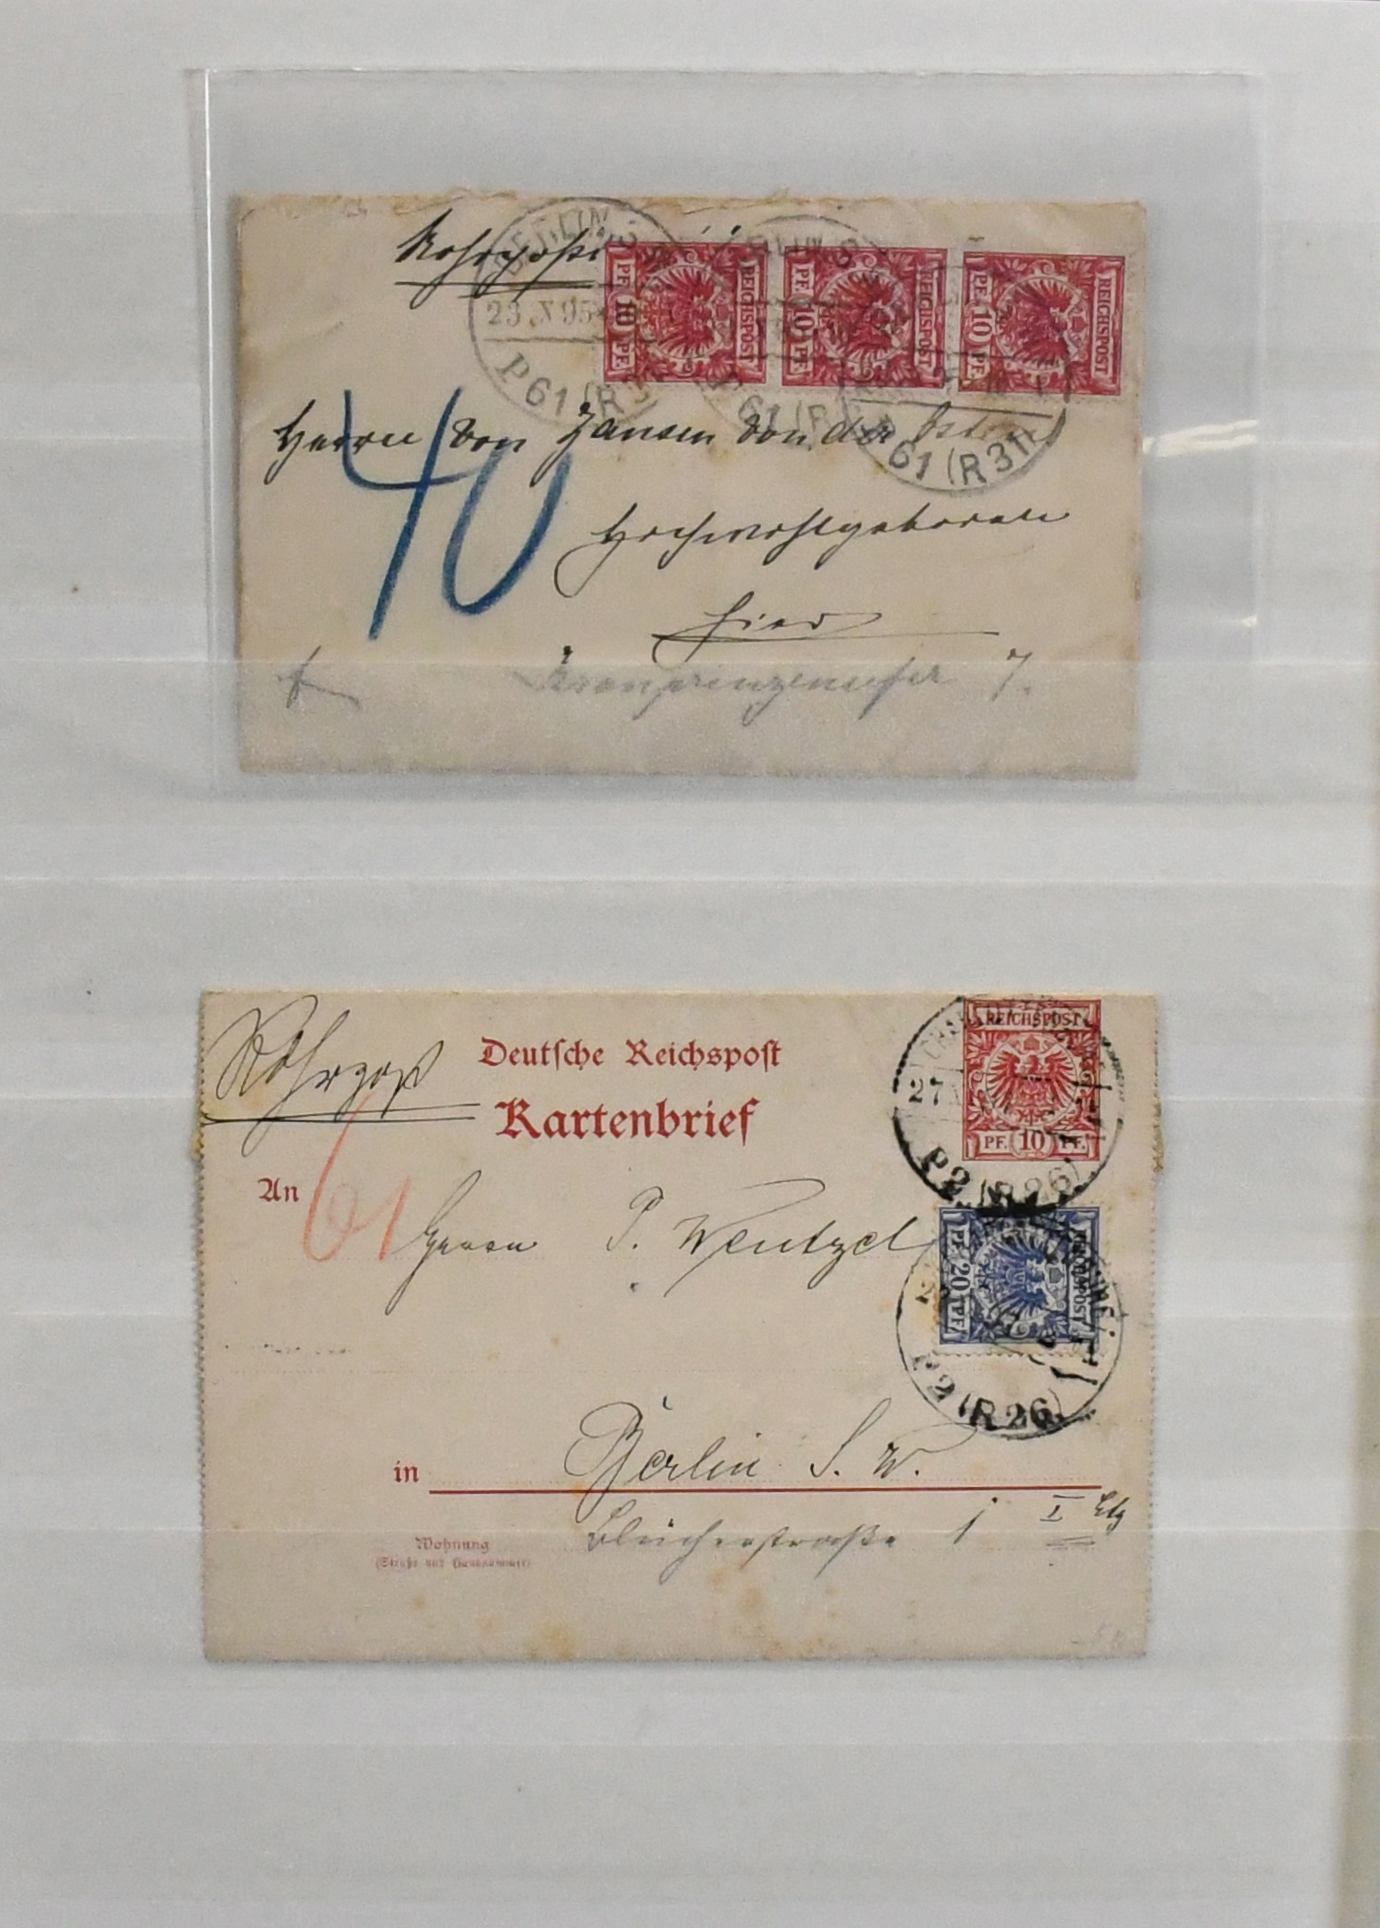 Rohrpost
BERLIN S
23.X 95
P 61 (R 31)
REICHSPOST
PF. 10 PF.
REICHSPOST
PF. 10 PF.
REICHSPOST
PF. 10 PF.
P 61 (R
61 (R 31)
Herrn von Jansen von der Osten
40
Hochwohlgeboren
hier
Kronprinzenufer 7.
Rohrpost
Deutſche Reichspoſt
Kartenbrief
REICHSPOST
PF. 10 PF.
27
P2 (R26)
An
61
Herrn P. Wentzel
REICHSPOST
PF. 20 PF.
P2 (R26)
in Berlin S. W.
Wohnung
(Straße und Hausnummer)
Blücherstraße 1 I Etg